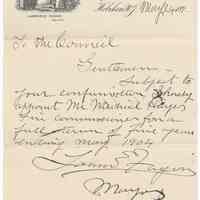 Hoboken NJ May 1st
To the Council
Gentlemen
Subject to
your confirmation I hereby
appoint Mr Michael Hayes
Fire Commissioner for a
full term of five years
ending May 1904
Fagan
Mayor